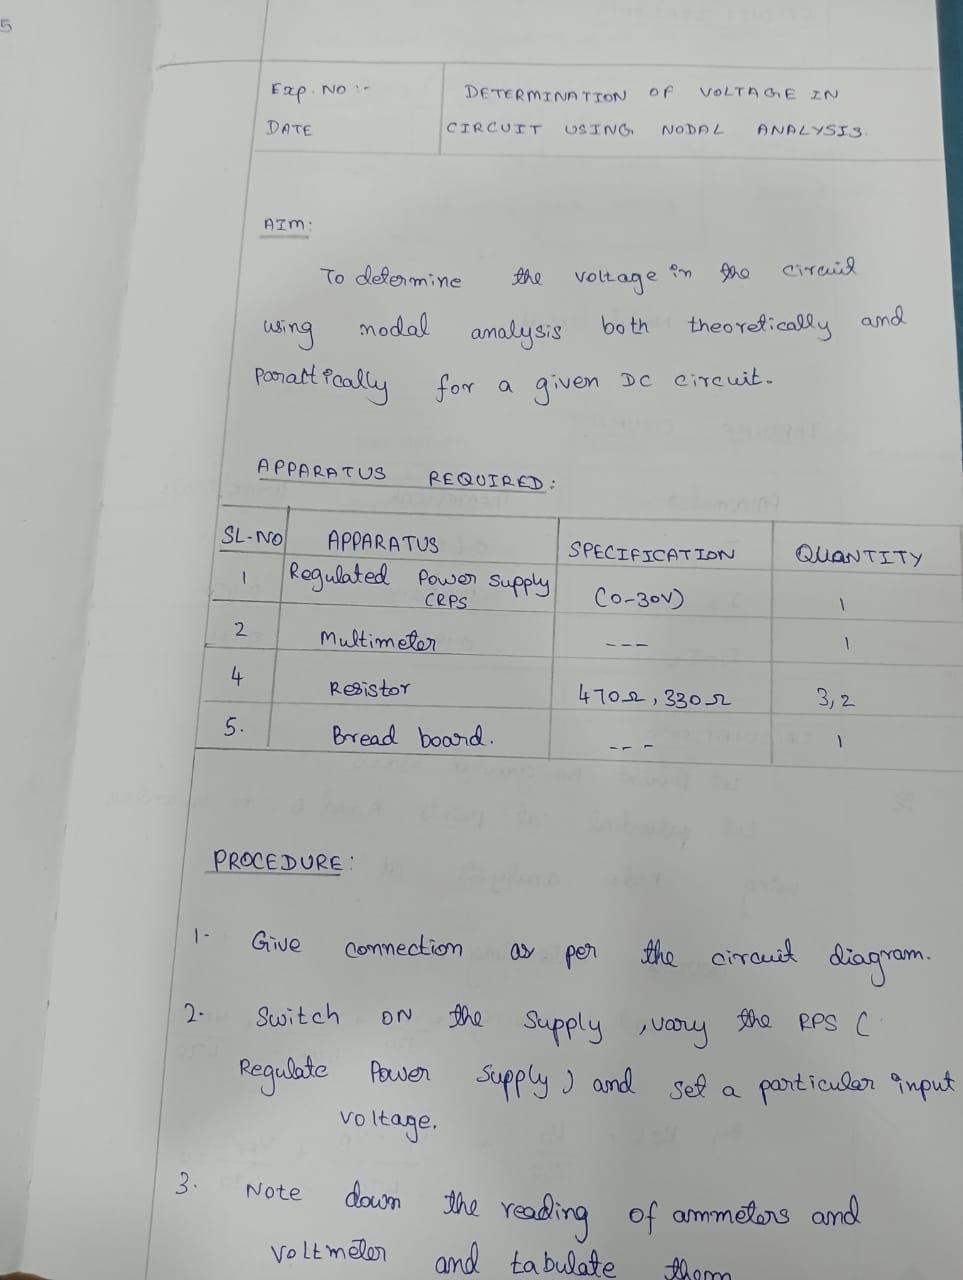 5
Exp. No :-
DATE
DETERMINATION OF VOLTAGE IN
CIRCUIT USING NODAL ANALYSIS.
AIM:
To determine the voltage in the circuit
using nodal analysis both theoretically and
Paratically for a given DC circuit.
APPARATUS REQUIRED:
SL-NO APPARATUS SPECIFICATION QUANTITY
1 Regulated Power Supply (0-30V) 1
CRPS
2 Multimeter --- 1
4 Resistor 470Ω, 330Ω 3,2
5. Bread board. --- 1
PROCEDURE:
1- Give connection as per the circuit diagram.
2. Switch ON the supply, vary the RPS (
Regulate Power Supply) and set a particular input
voltage.
3. Note down the reading of ammeters and
voltmeter and tabulate them